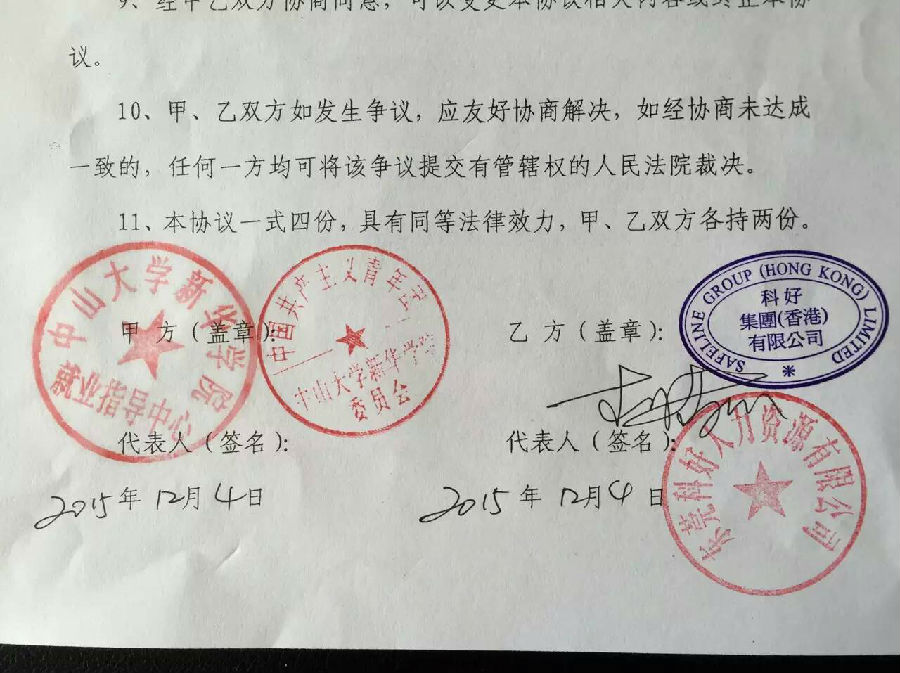 9、经甲乙双方协商同意，可以变更本协议相关内容或终止本协
议。
10、甲、乙双方如发生争议，应友好协商解决，如经协商未达成
一致的，任何一方均可将该争议提交有管辖权的人民法院裁决。
11、本协议一式四份，具有同等法律效力，甲、乙双方各持两份。
甲 方（盖章）：
中山大学新华学院
就业指导中心
中国共产主义青年团
中山大学新华学院
委员会
代表人（签名）：
2015年12月4日
乙 方（盖章）：
SAFELINE GROUP (HONG KONG) LIMITED
科好
集團(香港)
有限公司
*
代表人（签名）：
东莞科好人力资源有限公司
2015年12月4日